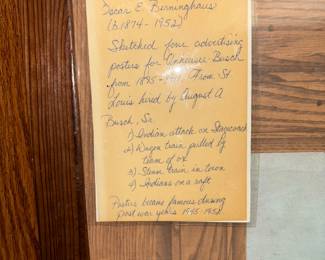 Oscar E. Berninghaus
(b. 1874-1952)
Sketched four advertising
posters for Anheuser Busch
from 1895- From St
Louis hired by August A
Busch, Sr.
1) Indian attack on Stagecoach
2) Wagon train pulled by
team of ox
3) Steam train in town
4) Indians on a raft
Posters became famous during
post war years 1945-1952